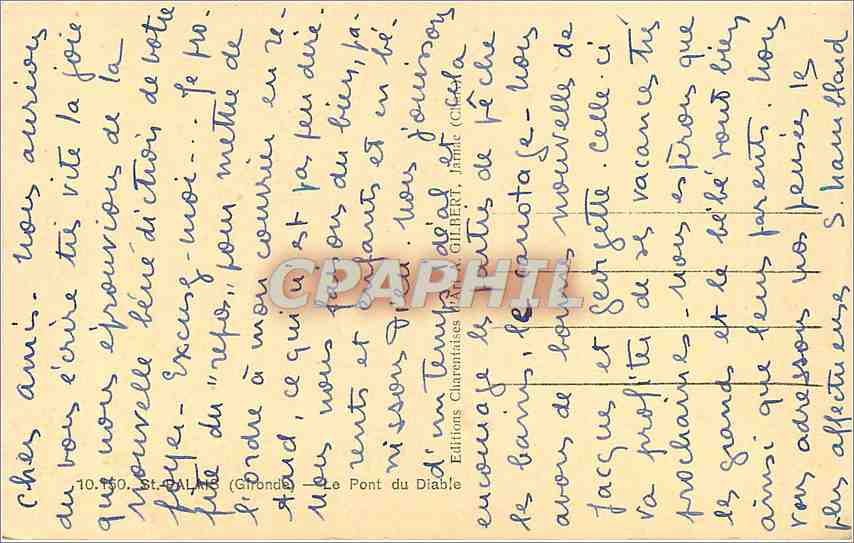 Chers amis - Nous aurions
du vous écrire très vite la joie
que nous éprouvions de la
nouvelle bénédiction de votre
foyer - Excusez-moi... Je pro-
fite du "repos" pour mettre de
l'ordre à mon courrier en re-
tard, ce qui n'est pas peu dire.
Nous nous faisons du bien, pa-
rents et enfants et en bé-
nissons Dieu. Nous jouissons
d'un temps idéal et cela
encourage les parties de pêche
les bains, le canotage - Nous
avons de bonnes nouvelles de
Jacques et Georgette. celle-ci
va profiter de ses vacances très
prochaines - Nous espérons que
les grands et le bébé vont bien
ainsi que leurs parents. Nous
vous adressons nos pensées les
plus affectueuses
10.150. St-PALAIS (Gironde) — Le Pont du Diable
Editions Charentaises d'Art A. GILBERT, Jarnac
CPAPHIL